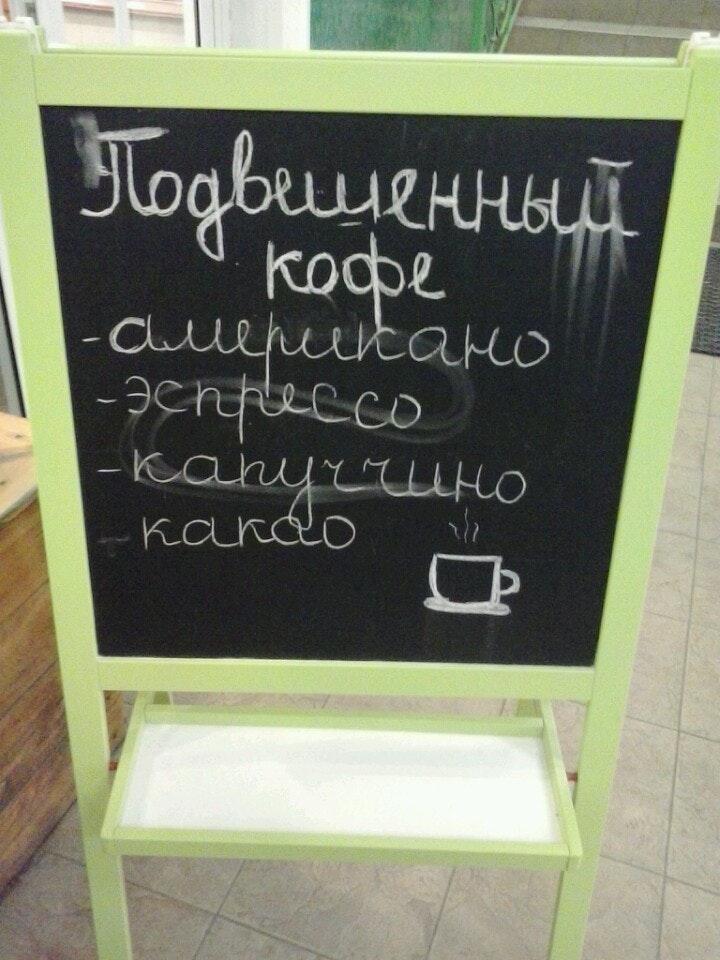 Подвешенный
кофе
- американо
- эспрессо
- капуччино
- какао